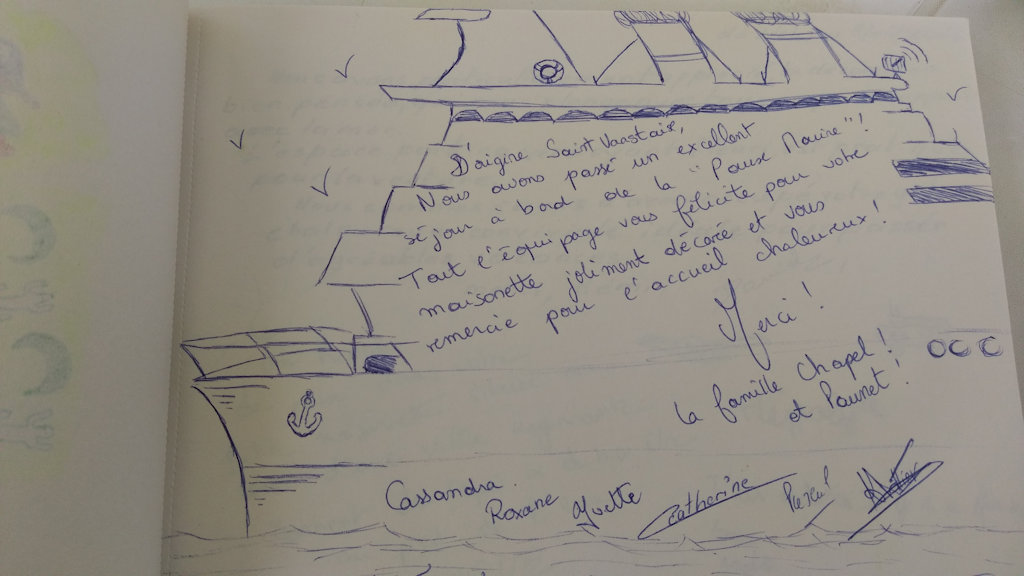 D'origine Saint Vaastaise,
Nous avons passé un excellent
séjour à bord de la "Pause Marine"!
Tout l'équipage vous félicite pour votre
maisonette joliment décorée et vous
remercie pour l'accueil chaleureux!
Merci!
La famille Chapel!
et Paunet!
Cassandra
Roxane
Yvette
Catherine
Pascal